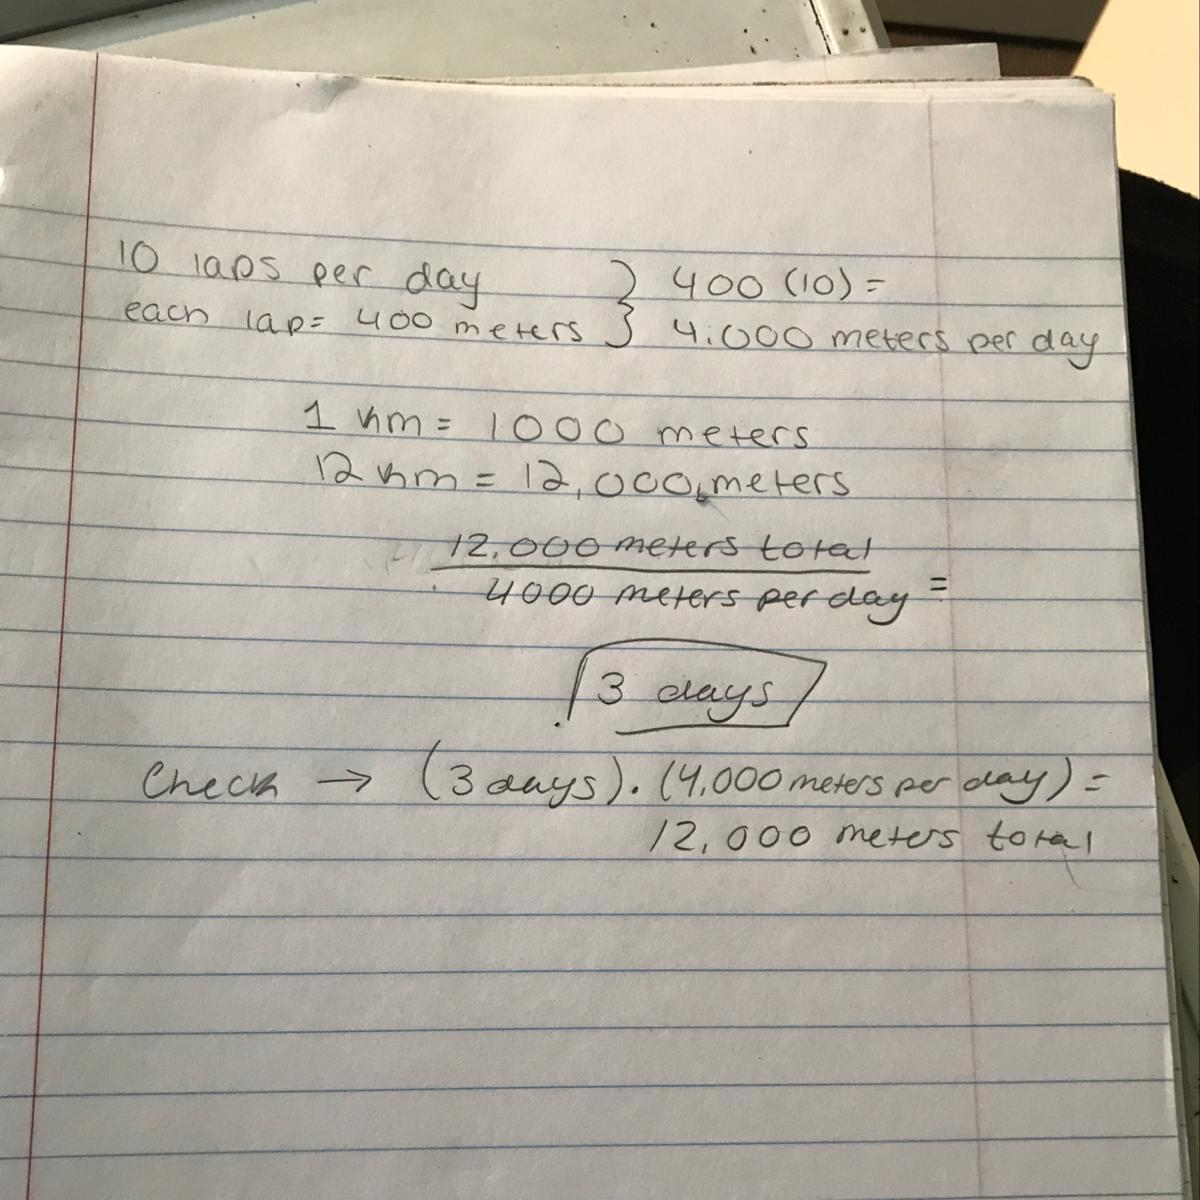 10 laps per day } 400 (10) =
each lap = 400 meters } 4.000 meters per day
1 km = 1000 meters
12 km = 12,000 meters
12.000 meters total
4000 meters per day =
3 days
Check → (3 days) . (4,000 meters per day) =
12,000 meters total